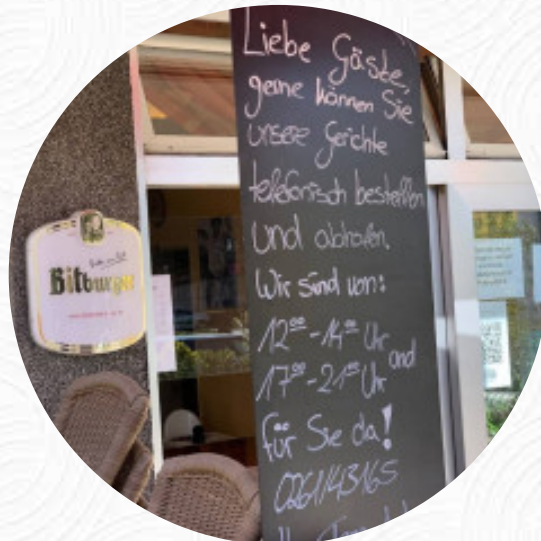 Liebe Gäste,
gerne können Sie
unsere Gerichte
telefonisch bestellen
und abholen.
Wir sind von:
12⁰⁰-14³⁰ Uhr und
17⁰⁰-21⁰⁰ Uhr
für Sie da!
0261/43165
Bitburger